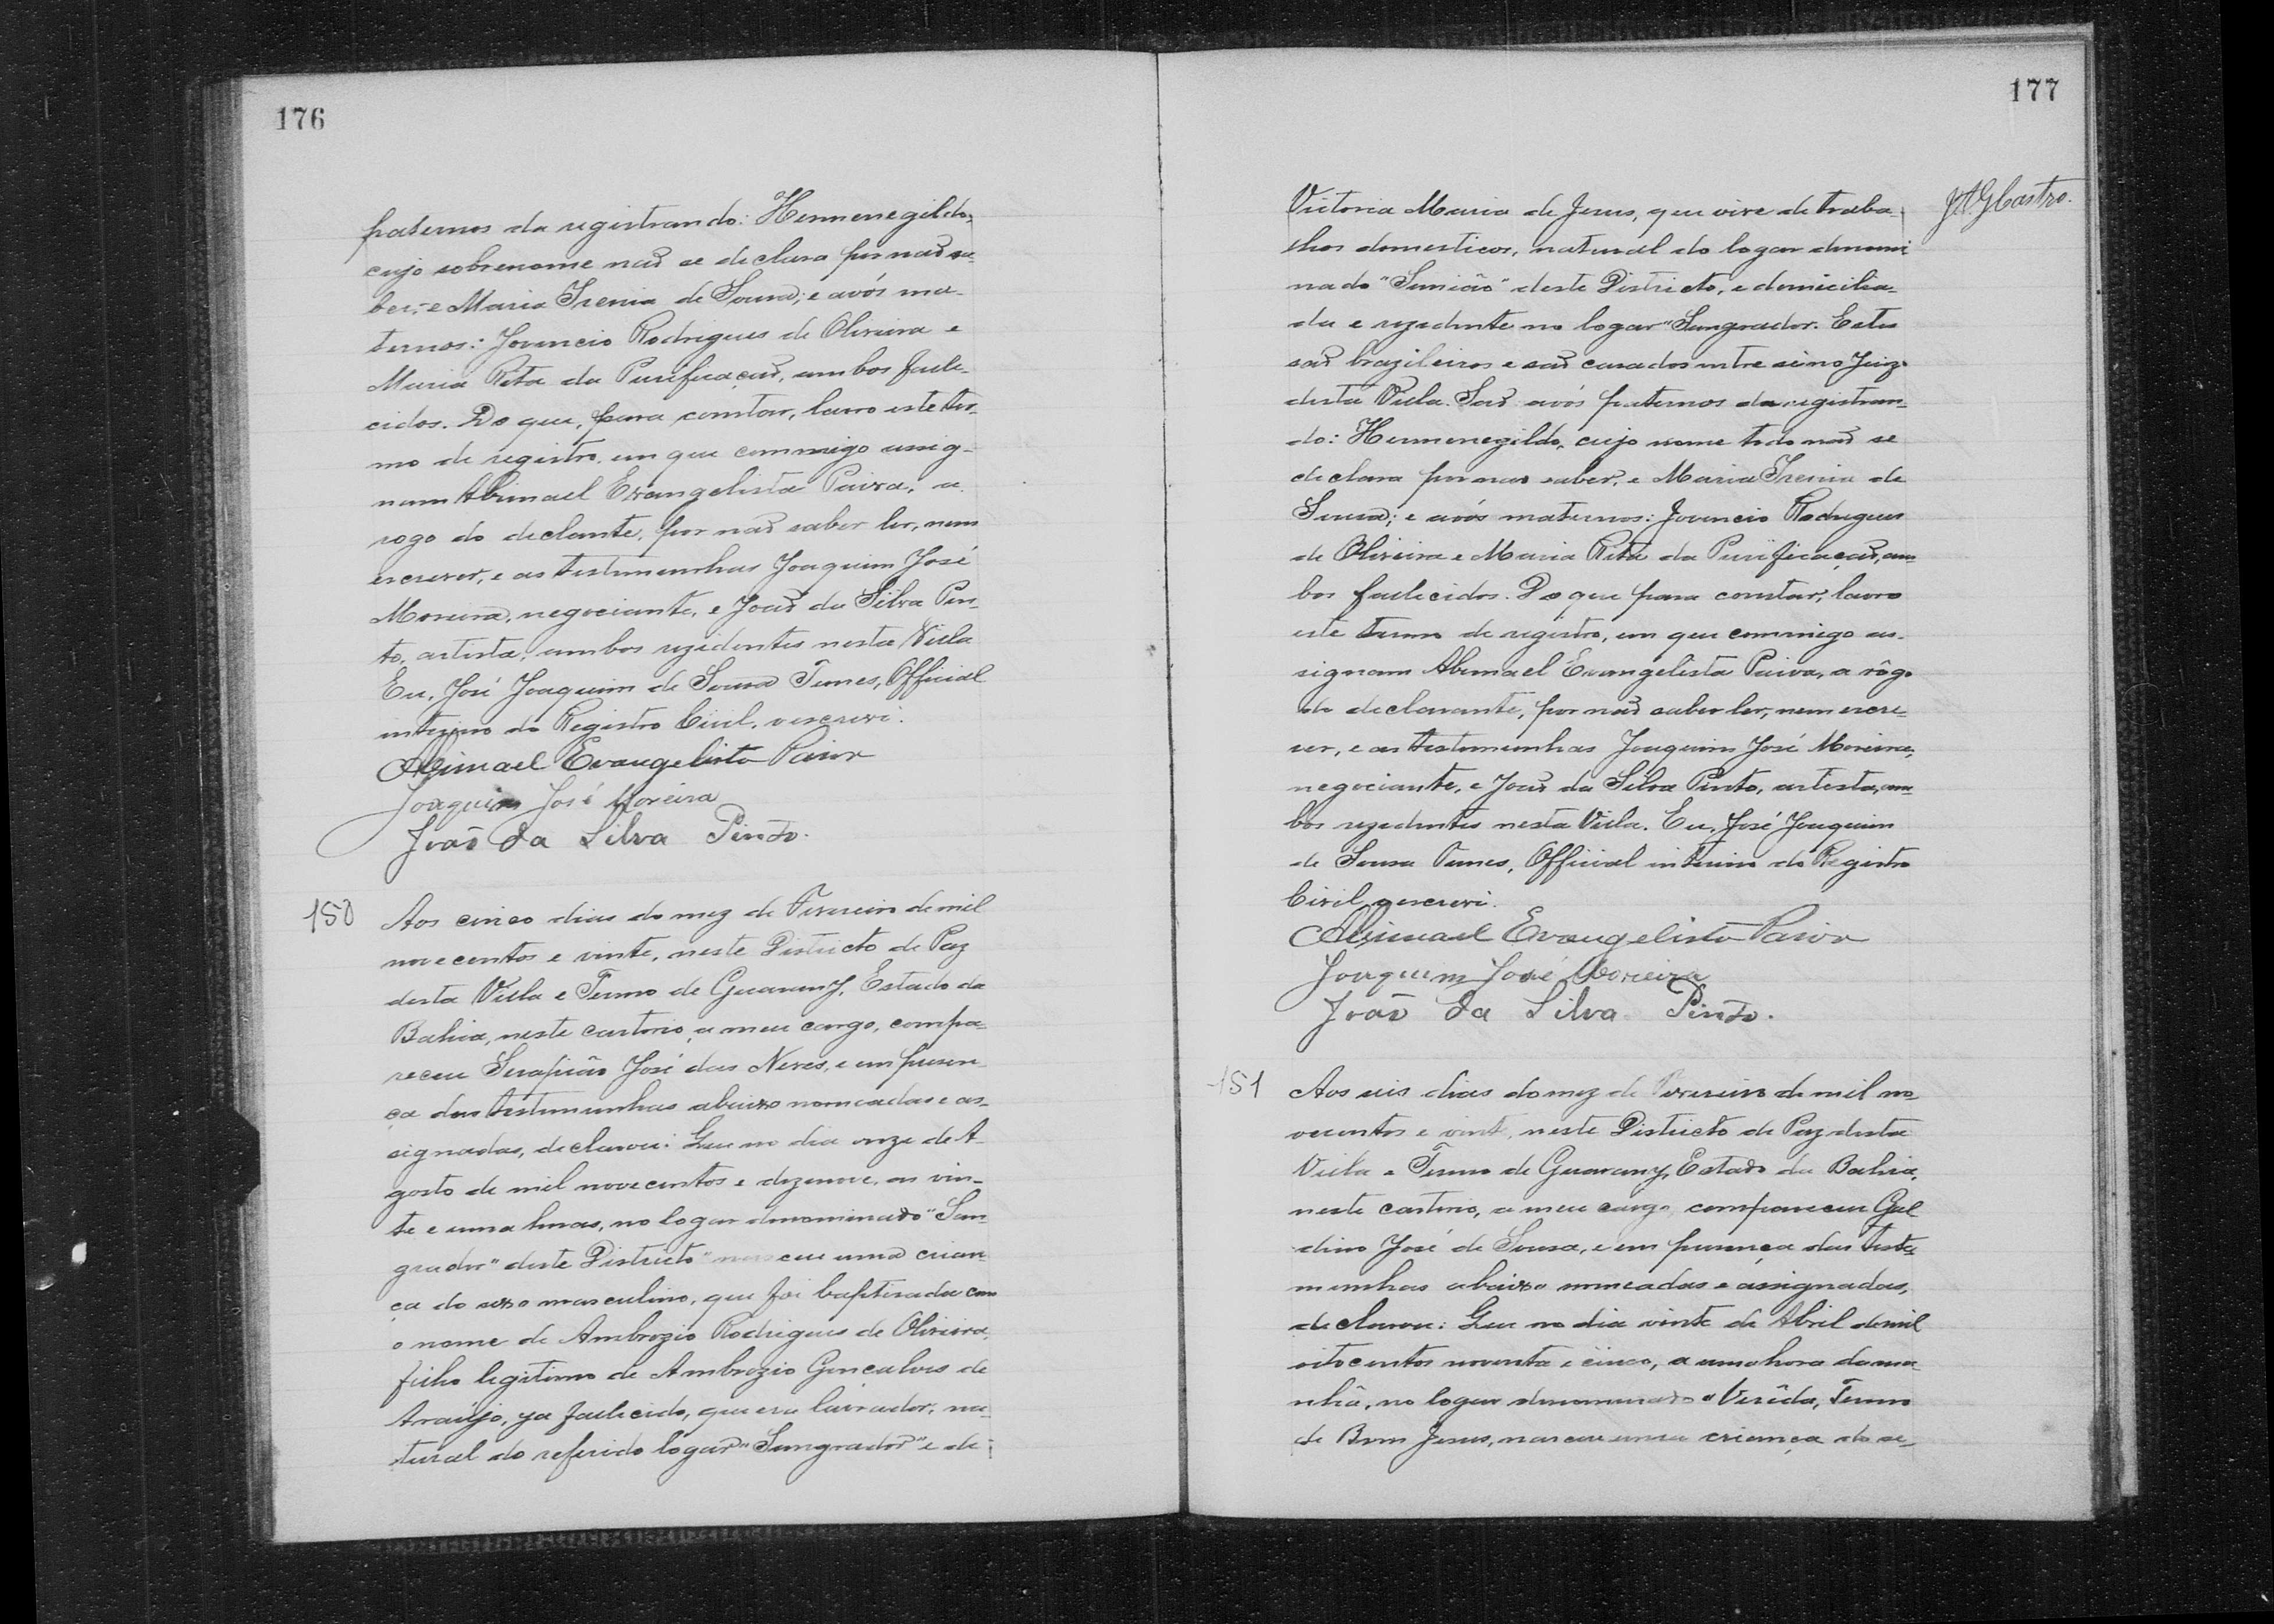 176
paternos da registrando: Hermenegildo,
cujo sobrenome não se declara por não sa-
ber, e Maria Irenia de Sousa; e avós ma-
ternos: Jovencio Rodrigues de Oliveira e
Maria Rita da Purificação, ambos falle-
cidos. Do que, para constar, lavro este ter-
mo de registro, em que commigo assig-
nam Abimael Evangelista Paiva, a
rogo do declante, por não saber ler, nem
escrever, e as testemunhas Joaquim José
Moreira, negociante, e João da Silva Pin-
to, artista, ambos rezidentes nesta Villa
Eu, José Joaquim de Sousa Tunes, Official
interino do Registro Civil, o escrevi.
Abimael Evangelista Paiva
Joaquim José Moreira
João da Silva Pinto.
150
Aos cinco dias do mez de Fevereiro de mil
novecentos e vinte, neste Districto de Paz
desta Villa e Termo de Guarany, Estado da
Bahia, neste cartorio, a meu cargo, compa-
receu Serapião José das Neves, e em presen-
ça das testemunhas abaixo nomeadas e as-
signadas, declarou: Que no dia onze de A-
gosto de mil novecentos e dezenove, as vin-
te e uma horas, no logar denominado "San-
grador" deste Districto" nasceu uma crian-
ça do sexo masculino, que foi baptisada com
o nome de Ambrozio Rodrigues de Oliveira,
filho legitimo de Ambrozio Gonçalves de
Araújo, ja fallecido, que era lavrador, na-
tural do referido logar "Sangrador" e de
177
J.A.G.Castro.
Victoria Maria de Jesus, que vive de traba-
lhos domesticos, natural do logar denomi
nado "Simião" deste Districto, e domicilia-
da e rezidente no logar "Sangrador. Estes
são brazileiros e são casados entre si no Juizo
desta Villa. São avós paternos da registran-
do: Hermenegildo, cujo nome todo não se
declara por não saber, e Maria Irenia de
Sousa; e avós maternos: Jovencio Rodrigues
de Oliveira e Maria Rita da Purificação, am-
bos fallecidos. Do que para constar, lavro
este termo de registro, em que commigo as-
signam Abimael Evangelista Paiva, a rôgo
do declarante, por não saber ler, nem escre-
ver, e as testemunhas Joaquim José Moreira,
negociante, e João da Silva Pinto, artista, am-
bos rezidentes nesta Villa. Eu, José Joaquim
de Sousa Tunes, Official interino do Registro
Civil, o escrevi.
Abimael Evangelista Paiva
Joaquim José Moreira
João da Silva Pinto.
151
Aos seis dias do mez de Fevereiro de mil no-
vecentos e vinte, neste Districto de Paz desta
Villa e Termo de Guarany, Estado da Bahia,
neste cartorio, a meu cargo, compareceu Gal-
dino José de Sousa, e em presença das teste-
munhas abaixo nomeadas e assignadas,
declarou: Que no dia vinte de Abril de mil
oitocentos noventa e cinco, a uma hora da ma-
nhã, no logar denominado "Verêda, Termo
de Bom Jesus, nasceu uma criança do se-